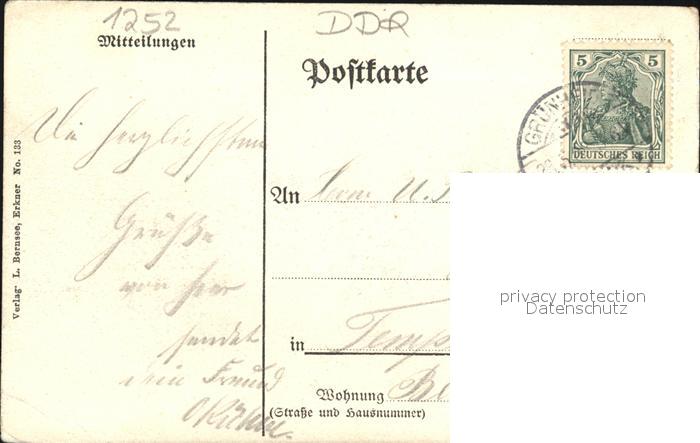 1252
DDR
Mitteilungen
Postkarte
5 5
DEUTSCHES REICH
GRÜN
Verlag L. Bernsee, Erkner No. 133
Die herzlichsten
Grüße
von hier
sendet
dein Freund
An Herrn
in Temp
Wohnung
(Straße und Hausnummer)
privacy protection
Datenschutz